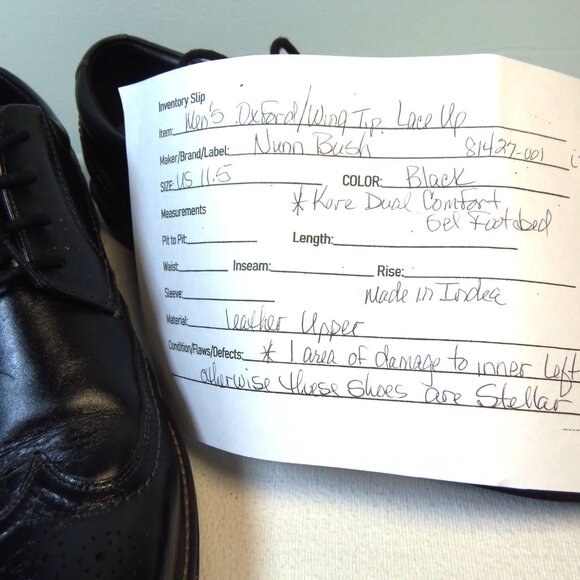 Inventory Slip
Item: Men's Oxford/Wing Tip Lace Up
Maker/Brand/Label: Nunn Bush 81427-001
SIZE: US 11.5 COLOR: Black
Measurements * Kore Dual Comfort
Gel Footbed
Pit to Pit: Length:
Waist: Inseam: Rise:
Sleeve: Made in India
Material: leather Upper
Condition/Flaws/Defects: * 1 area of damage to inner left
otherwise these shoes are Stellar